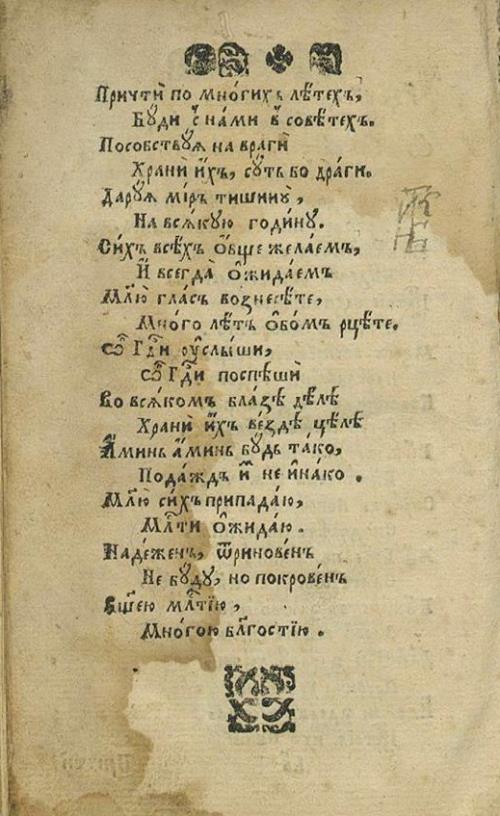 Причтѝ по мно́гихъ лѣ́техъ,
Бꙋ́ди с̾ на́ми в̾ совѣ́техъ.
Пособствꙋ́ѧ на врагѝ
Хранѝ и҆̀хъ, сꙋ́ть бо дра́ги.
Дарꙋ́ѧ ми́ръ тишинꙋ̀,
На всѧ́кую годи́нꙋ.
Си́хъ всѣ́хъ о҆́бще жела́емъ,
И҆̀ всегда̀ о҆жида́емъ
Мл҃ю гла́съ вознесѣ́те,
Мно́го лѣ́тъ о҆бо́мъ рцѣ́те.
Ѽ Гдⷭ҇и ᲂу҆слы́ши,
Ѽ Гдⷭ҇и поспѣшѝ
Во всѧ́комъ бла́зѣ дѣ́лѣ
Хранѝ и҆̀хъ ве́здѣ цѣ́лѣ
А҆ми́нь а҆ми́нь бꙋ́дь та́ко,
Пода́ждь и҆̀ не и҆на́ко.
Мл҃ю си́хъ припада́ю,
Млⷭ҇ти о҆жида́ю.
Наде́женъ, ѿринове́нъ
Не бꙋ́дꙋ, но покрове́нъ
Вш҃ею млⷭ҇тїю,
Мно́гою бл҃гостїю.